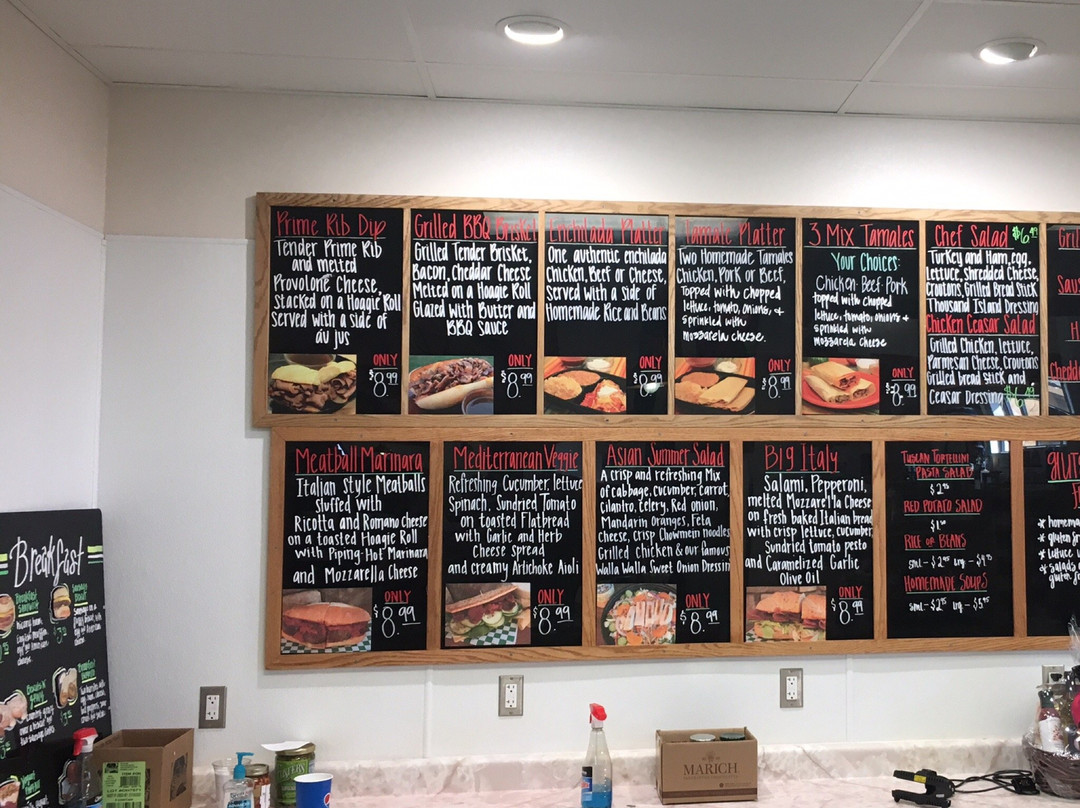 Prime Rib Dip
Tender Prime Rib
and melted
Provolone Cheese,
stacked on a Hoagie Roll
served with a side of
au jus
ONLY
$8.99
Grilled BBQ Brisket
Grilled Tender Brisket,
Bacon, Cheddar Cheese
Melted on a Hoagie Roll
Glazed with Butter and
BBQ Sauce
ONLY
$8.99
Enchilada Platter
One authentic enchilada
Chicken, Beef or Cheese,
served with a side of
Homemade Rice and Beans
ONLY
$8.99
Tamale Platter
Two Homemade Tamales
Chicken, Pork or Beef,
Topped with chopped
lettuce, tomato, onions, &
sprinkled with
mozzarela cheese.
ONLY
$8.99
3 Mix Tamales
Your Choices:
Chicken-Beef-Pork
topped with chopped
lettuce, tomato, onions &
sprinkled with
mozzarela cheese
ONLY
$8.99
Chef Salad $6.49
Turkey and Ham, egg,
lettuce, shredded Cheese,
Croutons, Grilled Bread Stick
Thousand Island Dressing
Chicken Ceasar Salad
Grilled Chicken, lettuce,
Parmesan Cheese, Croutons
Grilled bread stick and
Ceasar Dressing
Meatball Marinara
Italian Style Meatballs
stuffed with
Ricotta and Romano cheese
on a toasted Hoagie Roll
with Piping-Hot Marinara
and Mozzarella Cheese
ONLY
$8.99
Mediterranean Veggie
Refreshing Cucumber, lettuce
Spinach, Sundried Tomato
on toasted Flatbread
with Garlic and Herb
Cheese spread
and creamy Artichoke Aioli
ONLY
$8.99
Asian Summer Salad
A crisp and refreshing Mix
of cabbage, cucumber, carrot,
cilantro, celery, Red onion,
Mandarin oranges, Feta
cheese, crisp Chowmein noodles
Grilled chicken & our famous
Walla Walla Sweet Onion Dressin
ONLY
$8.99
Big Italy
Salami, Pepperoni,
melted Mozzarella Cheese
on fresh baked Italian bread
with crisp lettuce, cucumber
Sundried Tomato pesto
and Caramelized Garlic
Olive Oil
ONLY
$8.99
Tuscan Tortellini
Pasta Salad
Red Potato Salad
Rice or Beans
Homemade Soups
Breakfast
MARICH